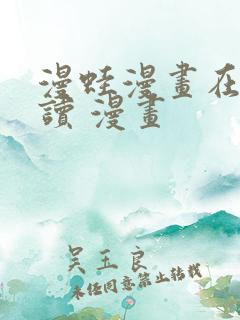 漫蛙漫畫在
讀 漫畫
吴五良
未经同意禁止转载